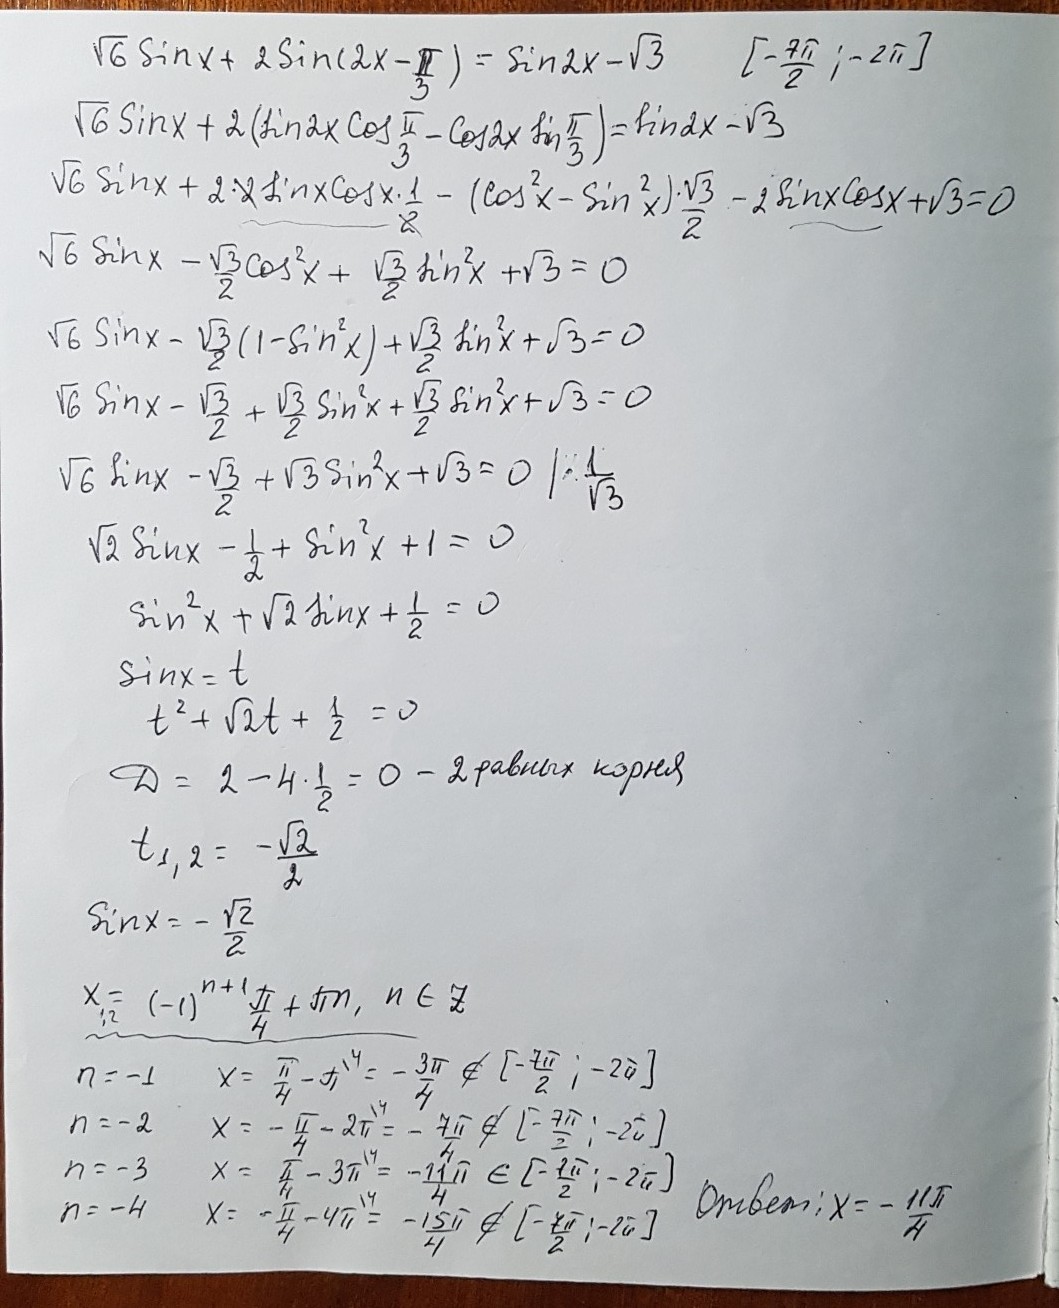 √6 Sinx + 2Sin(2x - π/3) = Sin2x - √3 [-7π/2 ; -2π]
√6 Sinx + 2(Sin2x Cos π/3 - Cos2x Sin π/3) = Sin2x - √3
√6 Sinx + 2·2 SinxCosx · 1/2 - (Cos²x - Sin²x)·√3/2 - 2SinxCosx + √3 = 0
√6 Sinx - √3/2 Cos²x + √3/2 Sin²x + √3 = 0
√6 Sinx - √3/2 (1 - Sin²x) + √3/2 Sin²x + √3 = 0
√6 Sinx - √3/2 + √3/2 Sin²x + √3/2 Sin²x + √3 = 0
√6 Sinx - √3/2 + √3 Sin²x + √3 = 0 | · 1/√3
√2 Sinx - 1/2 + Sin²x + 1 = 0
Sin²x + √2 Sinx + 1/2 = 0
Sinx = t
t² + √2t + 1/2 = 0
D = 2 - 4·1/2 = 0 - 2 равных корня
t1,2 = -√2/2
Sinx = - √2/2
x1,2 = (-1)ⁿ⁺¹ π/4 + πn, n ∈ Z
n = -1 x = π/4 - π\4 = - 3π/4 ∉ [-7π/2 ; -2π]
n = -2 x = - π/4 - 2π\4 = - 7π/4 ∉ [-7π/2 ; -2π]
n = -3 x = π/4 - 3π\4 = -11π/4 ∈ [-7π/2 ; -2π]
n = -4 x = - π/4 - 4π\4 = -15π/4 ∉ [-7π/2 ; -2π]
Ответ: x = - 11π/4